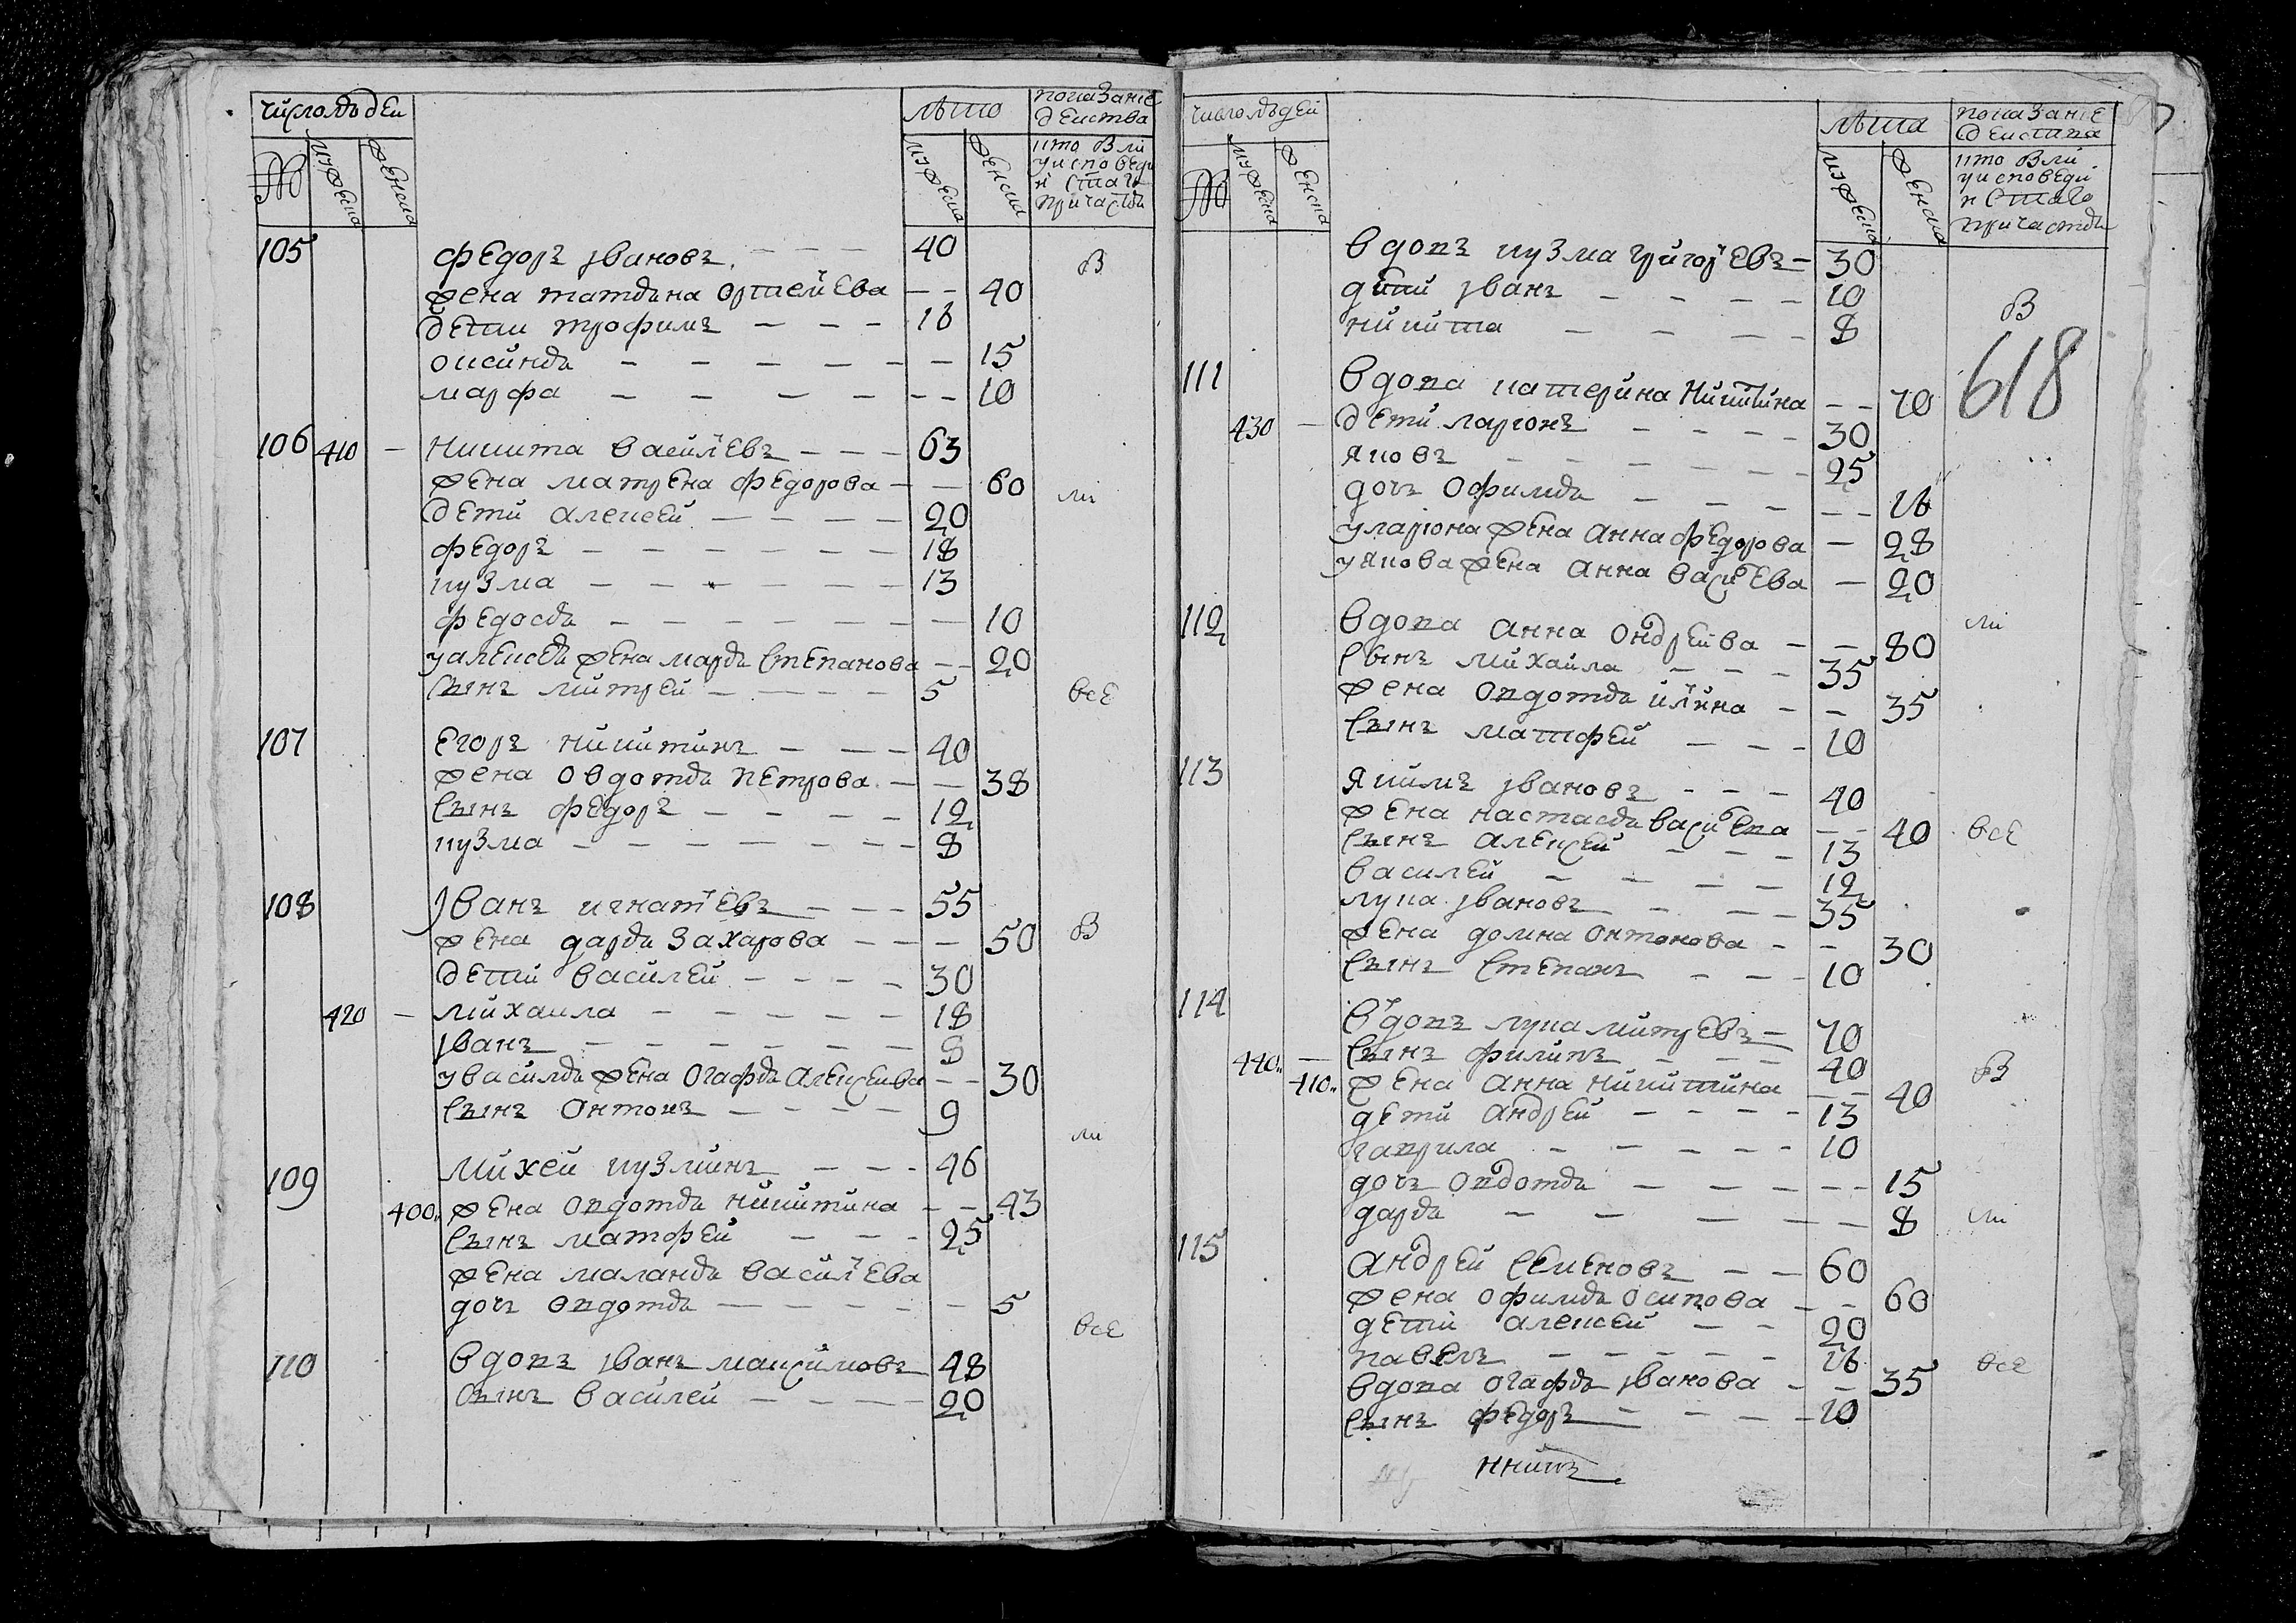 число людеи
лѣто
показаніе действа
№ мужеска женска
мужеска женска
кто были у исповеди и стаго причастія
105 федоръ јвановъ 40 В
жена татьяна ортемьева 40
дети трофимъ 16
оксинья 15
марфа 10
106 410 никита васильевъ 63
жена матрена федорова 60 ли
дети алексей 20
федоръ 18
кузма 13
федосья 10
у алексѣя жена марья степанова 20
сынъ митрей 5 все
107 егоръ никитинъ 40
жена овдотья петрова 38
сынъ федоръ 12
кузма 8
108 јванъ игнатьевъ 55
жена дарья захарова 50 В
дети василей 30
420 михаила 18
јванъ 8
у василья жена огафья алексеива 30
сынъ онтонъ 9
ли
109 михей кузминъ 46
400 жена овдотья никитина 43
сынъ матфей 25
жена маланья васильева
дочь овдотья 5
все
110 вдовъ јванъ максимовъ 48
сынъ василей 20
число людей
лѣта
показаніе действа
№ мужеска женска
мужеска женска
кто были у исповеди и стаго причастья
вдовъ кузма григорьевъ 30
дети јванъ 10 В
никита 8
618
111 вдова катерина никитина 70
430 дети ларіонъ 30
яковъ 25
дочь офимья 16
у ларіона жена анна федорова 28
у якова жена анна васильева 20
112 вдова анна ондреива 80 ли
сынъ михайла 35
жена овдотья ильина 35
сынъ матфей 10
113 якимъ јвановъ 40
жена настасья васильева 40 все
сынъ алексей 13
василей 12
лука јвановъ 35
жена домна онтонова 30
сынъ степанъ 10
114 вдовъ лука митревъ 70
440 сынъ филипъ 40 В
410 жена анна никитина 40
дети андрей 13
гаврила 10
дочь овдотья 15
дарья 8 ли
115 андрей семеновъ 60
жена офимья осипова 60
дети алексей 20
павелъ 16 все
вдова огафья јванова 35
сынъ федоръ 10